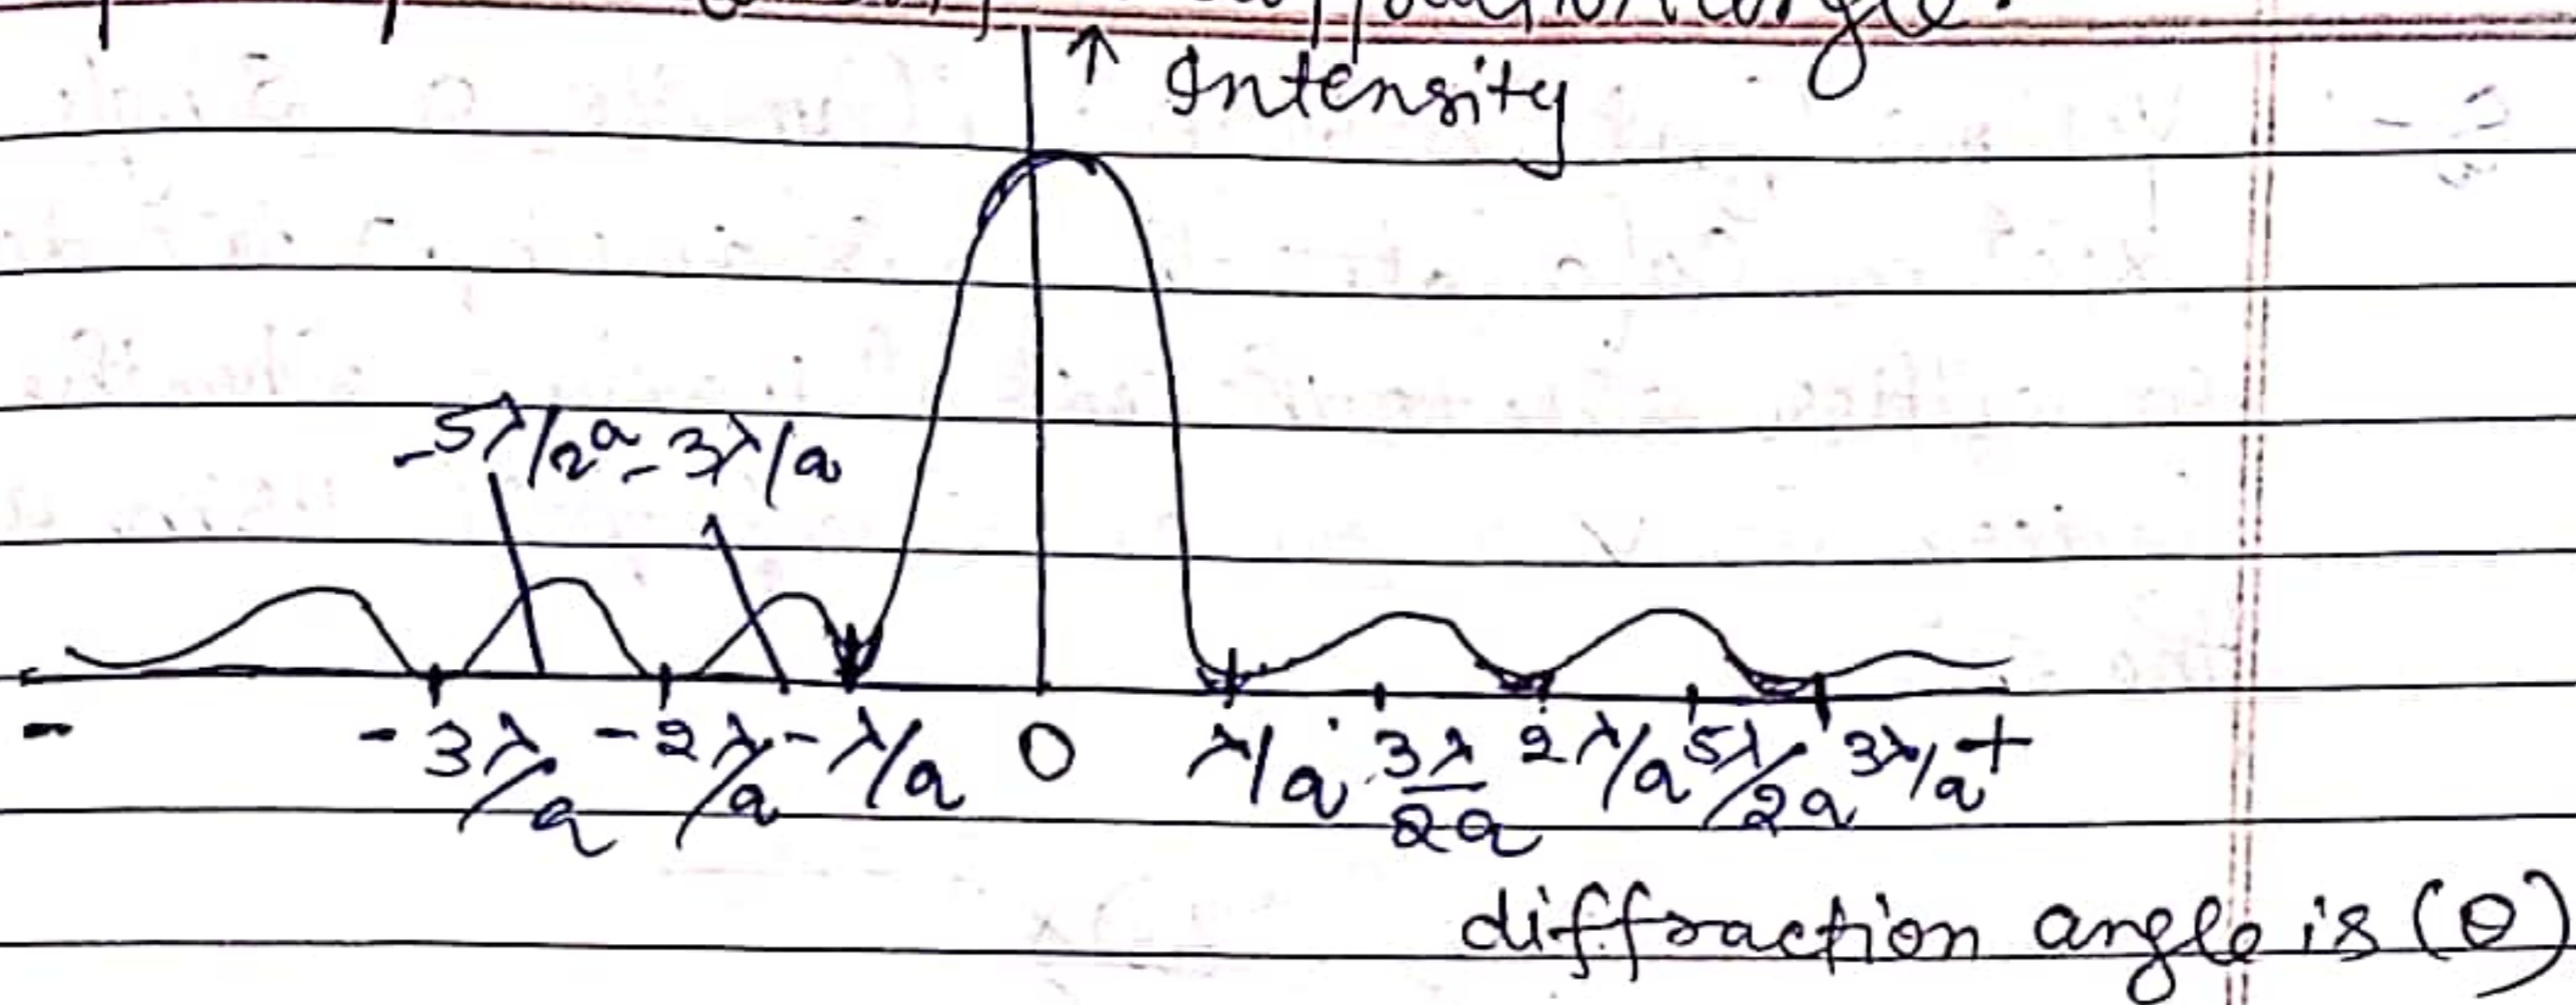 Intensity
-5λ/2a -3λ/a
- -3λ/a -2λ/a -λ/a 0 λ/a 3λ/2a 2λ/a 5λ/2a 3λ/a +
diffraction angle is (θ)